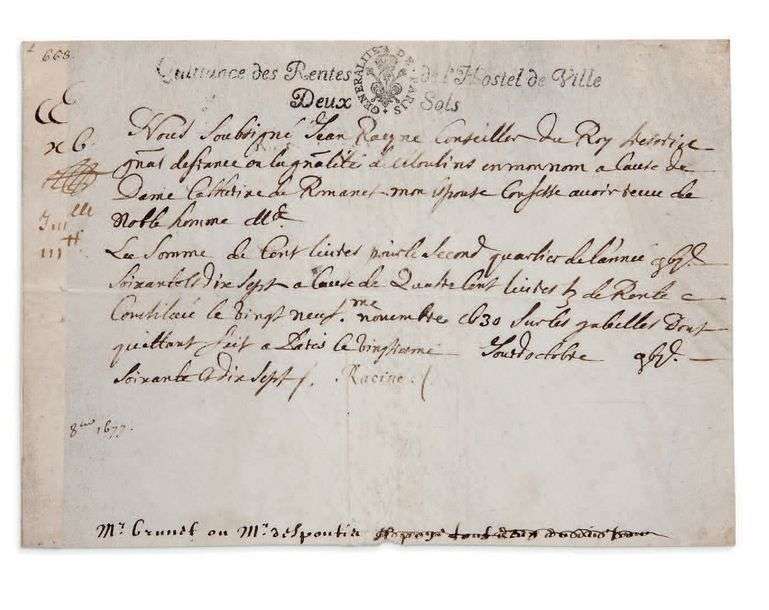 668.
Quittance des Rentes de l'Hostel de Ville
GENERALITE DE PARIS
Deux Sols
Nous Soubsigné Jean Racine Conseiller du Roy tresorier
gnal de france en la gnalité de Moulins en mon nom a cause de
Dame Catherine de Romanet mon espouse Confesse avoir receu de
Noble homme Me
La Somme de Cent livres pour le Second quartier de l'année
Soixante dix sept a Cause de Quatre Cent livres tz de Rente
Constituée le vingt neuf.me novembre 1630 Sur les gabelles Dont
quittant fait a Paris le vingtiesme Jour d'octobre
Soixante & dix sept Racine
8bre 1677.
Mr. Brunet ou Mr. despontis